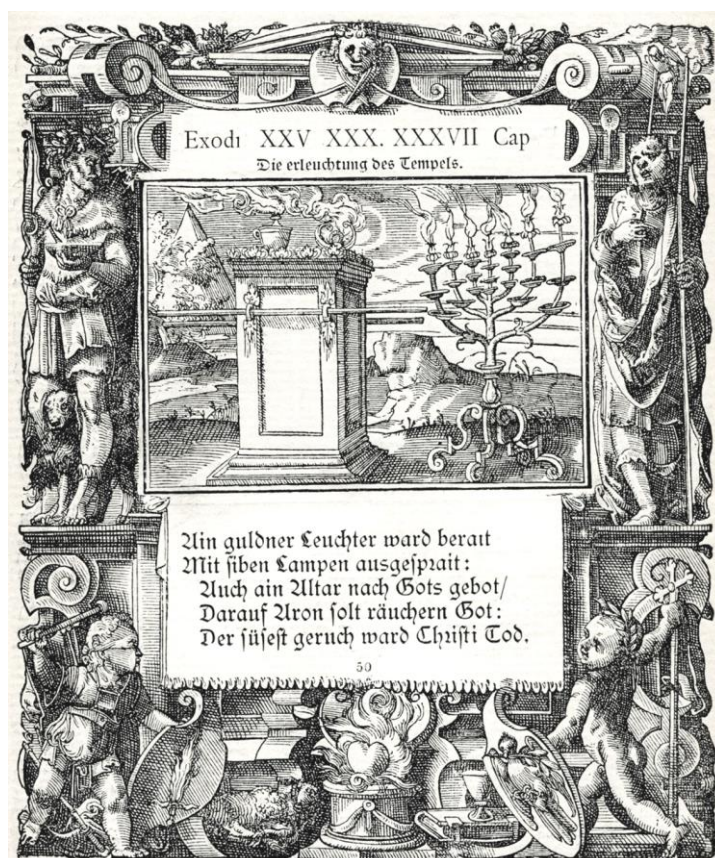 Exodi XXV XXX. XXXVII Cap
Die erleuchtung des Tempels.
Ain guldner Leuchter ward berait
Mit siben Lampen ausgesprait:
Auch ain Altar nach Gots gebot/
Darauf Aron solt räuchern Got:
Der süsest geruch ward Christi Tod.
50